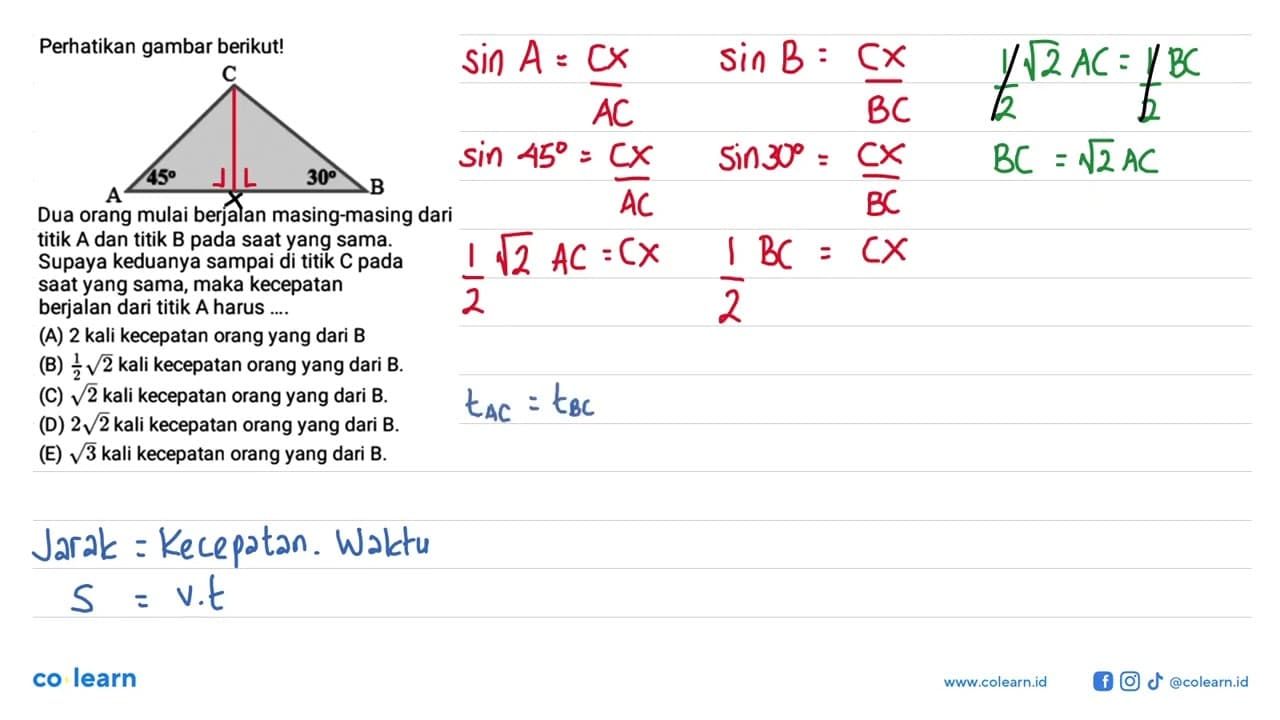 Perhatikan gambar berikut!
C
45° 30°
A X B
Dua orang mulai berjalan masing-masing dari
titik A dan titik B pada saat yang sama.
Supaya keduanya sampai di titik C pada
saat yang sama, maka kecepatan
berjalan dari titik A harus ....
(A) 2 kali kecepatan orang yang dari B
(B) 1/2 √2 kali kecepatan orang yang dari B.
(C) √2 kali kecepatan orang yang dari B.
(D) 2√2 kali kecepatan orang yang dari B.
(E) √3 kali kecepatan orang yang dari B.
sin A = CX/AC
sin 45° = CX/AC
1/2 √2 AC = CX
sin B = CX/BC
sin 30° = CX/BC
1/2 BC = CX
1/2 √2 AC = 1/2 BC
BC = √2 AC
tAC = tBC
Jarak = Kecepatan . Waktu
S = v.t
co learn
www.colearn.id
@colearn.id